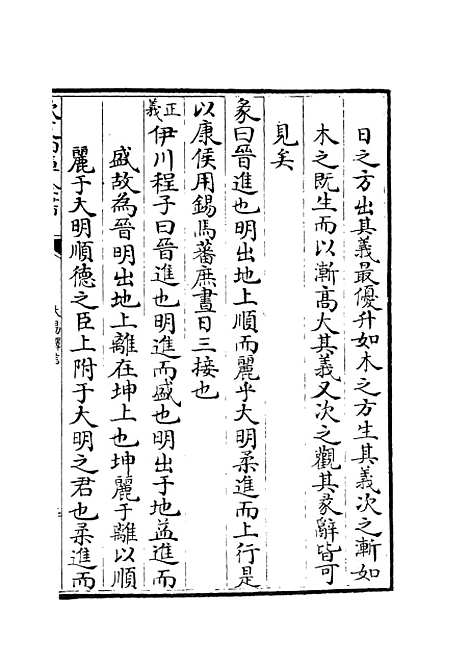 日之方出其義最優升如木之方生其義次之漸如
木之既生而以漸高大其義又次之觀其彖辭皆可
見矣
彖曰晉進也明出地上順而麗乎大明柔進而上行是
以康侯用錫馬蕃庶晝日三接也
正義
伊川程子曰晉進也明進而盛也明出于地益進而
盛故為晉明出地上離在坤上也坤麗于離以順
麗于大明順德之臣上附于大明之君也柔進而